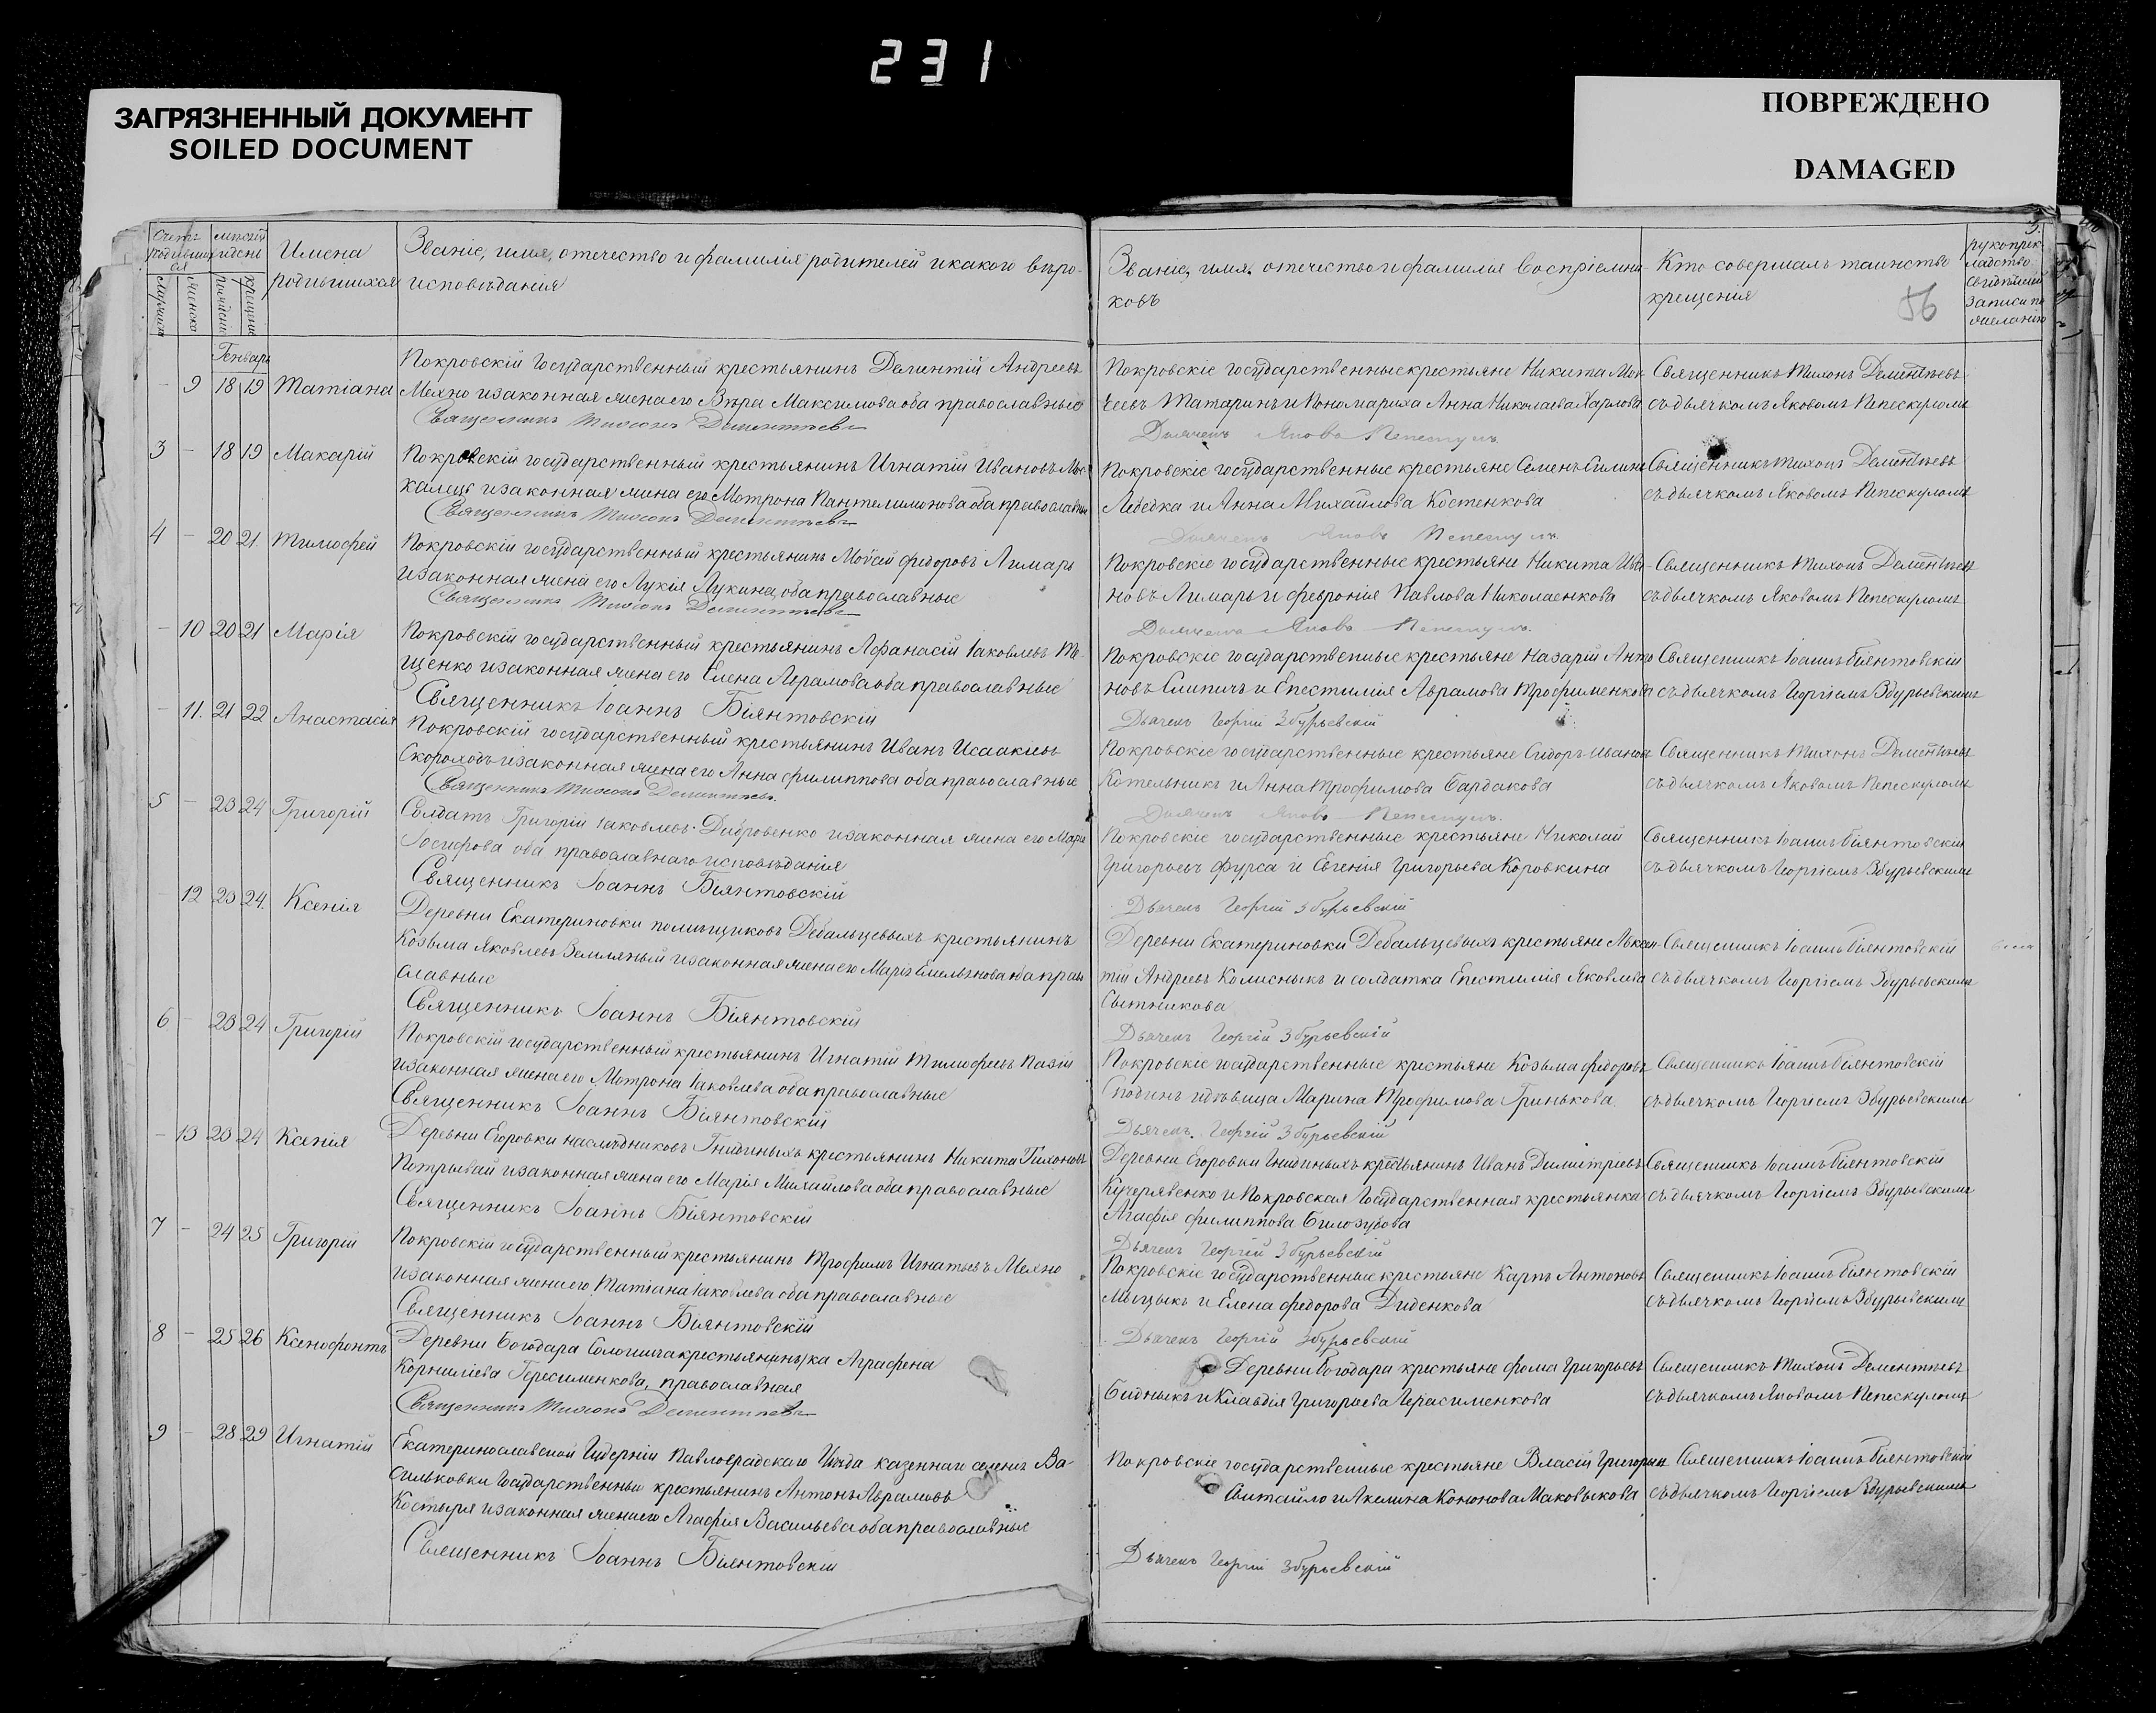 231
ЗАГРЯЗНЕННЫЙ ДОКУМЕНТ
SOILED DOCUMENT
ПОВРЕЖДЕНО
DAMAGED
Счетъ родившихся
мужеска
женска
месяцъ и день
рожденія
крещенія
Имена
родившихся
Званіе, имя, отечество и фамилія родителей и какого вѣро-
исповѣданія
Званіе, имя, отечество и фамилія воспріемни-
ковъ
Кто совершалъ таинство
крещенія
56
рукоприкладство
свидѣтелей
записи по
желанію
Генварь
- 9 18 19 Татіана
Покровскій государственный крестьянинъ Андреевъ
Мехно и законная жена его Вѣра Максимова оба православные
Священникъ Тихонъ Дементьевъ
Покровскіе государственные крестьяне Никита
Татаринъ и Пономариха Анна Николаева
Дьячекъ Яковъ
Священникъ Тихонъ Дементьевъ
съ дьячкомъ Яковомъ
3 - 18 19 Макарій
Покровскій государственный крестьянинъ Игнатій Ивановъ
и законная жена его Мотрона Пантелимонова оба православные
Священникъ Тихонъ Дементьевъ
Покровскіе государственные крестьяне Семенъ
Лебедка и Анна Михайлова Костенкова
Дьячекъ Яковъ
Священникъ Тихонъ Дементьевъ
съ дьячкомъ Яковомъ
4 - 20 21 Тимофей
Покровскій государственный крестьянинъ Моѵсей Федоровъ Лимарь
и законная жена его Лукія Лукина, оба православные
Священникъ Тихонъ Дементьевъ
Покровскіе государственные крестьяне Никита Ива-
новъ Лимарь и Февронія Павлова Николаенкова
Дьячекъ Яковъ
Священникъ Тихонъ Дементьевъ
съ дьячкомъ Яковомъ
- 10 20 21 Марія
Покровскій государственный крестьянинъ Афанасій Іаковлевъ
щенко и законная жена его Елена Абрамова оба православные
Священникъ Іоаннъ Біянтовскій
Покровскіе государственные крестьяне Назарій Анто
новъ и Епестимія Аврамова Трофименкова
Дьячекъ Георгій Збурьевскій
Священникъ Іоаннъ Біянтовскій
съ дьячкомъ Георгіемъ Збурьевскимъ
- 11. 21 22 Анастасія
Покровскій государственный крестьянинъ Иванъ Исаакіевъ
Скороходъ и законная жена его Анна Филиппова оба православные
Священникъ Тихонъ Дементьевъ.
Покровскіе государственные крестьяне Сидоръ Ивановъ
Котельникъ и Анна Трофимова Бардакова
Дьячекъ Яковъ
Священникъ Тихонъ Дементьевъ
съ дьячкомъ Яковомъ
5 - 23 24 Григорій
Солдатъ Григорій Іаковлевъ Добровенко и законная жена его
Іосифова оба православнаго исповѣданія
Священникъ Іоаннъ Біянтовскій
Покровскіе государственные крестьяне Николай
Григорьевъ Фурса и Евгенія Григорьева Коровкина
Дьячекъ Георгій Збурьевскій
Священникъ Іоаннъ Біянтовскій
съ дьячкомъ Георгіемъ Збурьевскимъ
- 12 23 24. Ксенія
Деревни Екатериновки помѣщиковъ Дебальцевыхъ крестьянинъ
Козьма Яковлевъ Земляный и законная жена его Марія Емельянова оба прав
славные
Священникъ Іоаннъ Біянтовскій
Деревни Екатериновки Дебальцевыхъ крестьяне Авксен-
тій Андреевъ Колисныкъ и солдатка Епестимія Яковлева
Сытникова
Дьячекъ Георгій Збурьевскій
Священникъ Іоаннъ Біянтовскій
съ дьячкомъ Георгіемъ Збурьевскимъ
6 - 23 24 Григорій
Покровскій государственный крестьянинъ Игнатій Тимофеевъ
и законная жена его Мотрона Іаковлева оба православные
Священникъ Іоаннъ Біянтовскій
Покровскіе государственные крестьяне Козьма Федоровъ
и дѣвица Марина Трофимова Гринькова
Дьячекъ. Георгій Збурьевскій
Священникъ Іоаннъ Біянтовскій
съ дьячкомъ Георгіемъ Збурьевскимъ
- 13 23 24 Ксенія
Деревни Егоровки наслѣдниковъ Гнидиныхъ крестьянинъ Никита Тихоновъ
Потрывай и законная жена его Марія Михайлова оба православные
Священникъ Іоаннъ Біянтовскій
Деревни Егоровки Гнидиныхъ крестьянинъ Иванъ Димитріевъ
Кучерявенко и Покровская государственная крестьянка
Агафія Филиппова Билозубова
Дьячекъ Георгій Збурьевскій
Священникъ Іоаннъ Біянтовскій
съ дьячкомъ Георгіемъ Збурьевскимъ
7 - 24 25 Григорій
Покровскій государственный крестьянинъ Трофимъ Игнатьевъ Мехно
и законная жена его Татіана Іаковлева оба православные
Священникъ Іоаннъ Біянтовскій
Покровскіе государственные крестьяне Карпъ Антоновъ
и Елена Федорова Диденкова
Дьячекъ Георгій Збурьевскій
Священникъ Іоаннъ Біянтовскій
съ дьячкомъ Георгіемъ Збурьевскимъ
8 - 25 26 Ксенофонтъ
Деревни Богодара крестьянка Аграфена
Корниліева Герасименкова, православная
Священникъ Тихонъ Дементьевъ
Деревни Богодара крестьяне Фома Григорьевъ
Бидныкъ и Клавдія Григорьева Герасименкова
Священникъ Тихонъ Дементьевъ
съ дьячкомъ Яковомъ
9 - 28 29 Игнатій
Екатеринославской Губерніи Павлоградскаго Уѣзда казеннаго селенія Ва-
сильковки государственный крестьянинъ Антонъ Аврамовъ
Костыря и законная жена его Агафія Васильева оба православные
Священникъ Іоаннъ Біянтовскій
Покровскіе государственные крестьяне Власій Григорьевъ
и Акелина Кононова Маковыкова
Дьячекъ Георгій Збурьевскій
Священникъ Іоаннъ Біянтовскій
съ дьячкомъ Георгіемъ Збурьевскимъ